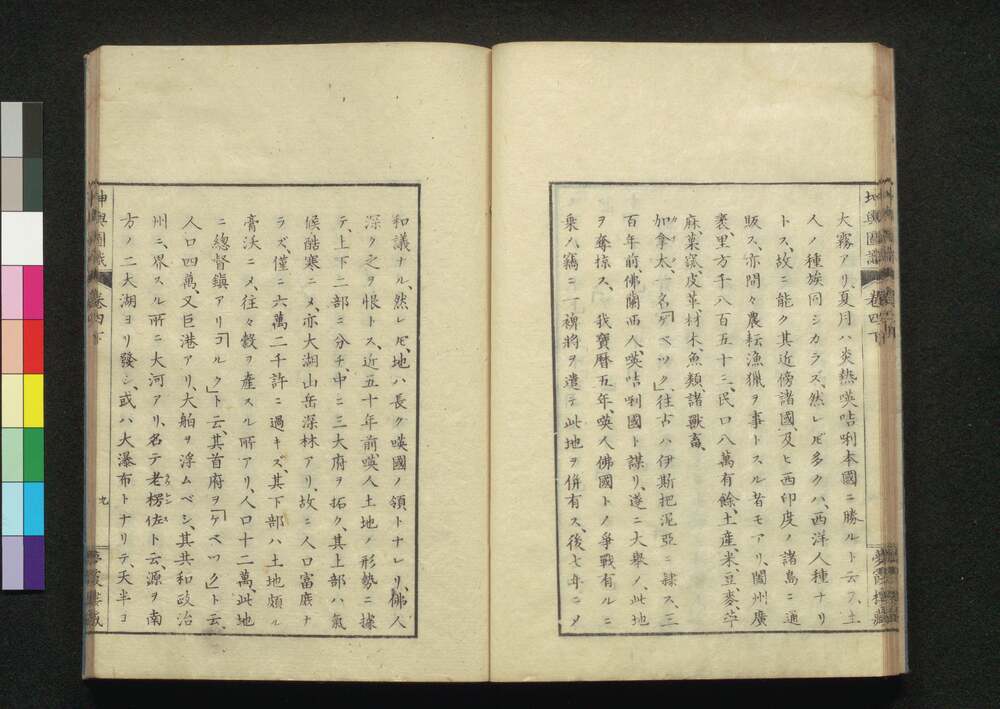 坤輿圖識
卷四下
夢霞樓藏
大霧アリ、夏月ハ炎熱暎咭唎本國ニ勝ルト云フ、土
人ノ種族同シカラズ、然レ𪜈多クハ、西洋人種ナリ
トス、故ニ能ク其近傍諸國、及ヒ西印度ノ諸島ニ通
販ス、亦間々農耘漁獵ヲ事トスル者モアリ、闔州廣
袤、里方千八百五十三、民口八萬有餘、土産、米、豆、麥、苧
麻、菓窠、皮革、材木、魚類、諸獸畜、
加拿太、一名「ゲベック」往古ハ伊斯把泥亞ニ隷ス、三
百年前、佛蘭西人暎咭唎國ト謀リ、遂ニ大舉ノ、此地
ヲ奪掠ス、我寶暦五年、暎人佛國トノ爭戰有ルニ
乗ハ竊ニ一裨將ヲ遣テ此地ヲ併有ス、後七年ニメ
和議ナル、然レ𪜈、地ハ長ク暎國ノ領トナレリ、佛人
深ク之ヲ恨トス、近五十年前、暎人土地ノ形勢ニ據
テ、上下二部ニ分チ、中ニ三大府ヲ拓ク、其上部ハ氣
候酷寒ニメ、亦大湖山岳深林アリ、故ニ人口富庶ナ
ラズ、僅ニ六萬二千許ニ過キズ、其下部ハ土地頗ル
膏沃ニメ、往々穀ヲ産スル所アリ、人口十二萬、此地
ニ總督鎭アリ「コルク」ト云、其首府ヲ「ゲベック」ト云、
人口四萬、又巨港アリ、大舶ヲ浮ムベシ、其共和政治
州ニ、界スル所ニ大河アリ、名テ老楞佐ト云、源ヲ南
方ノ二大湖ヨリ發シ、或ハ大瀑布トナリテ、天半ヨ
坤輿圖識
卷四下
九
夢霞樓藏